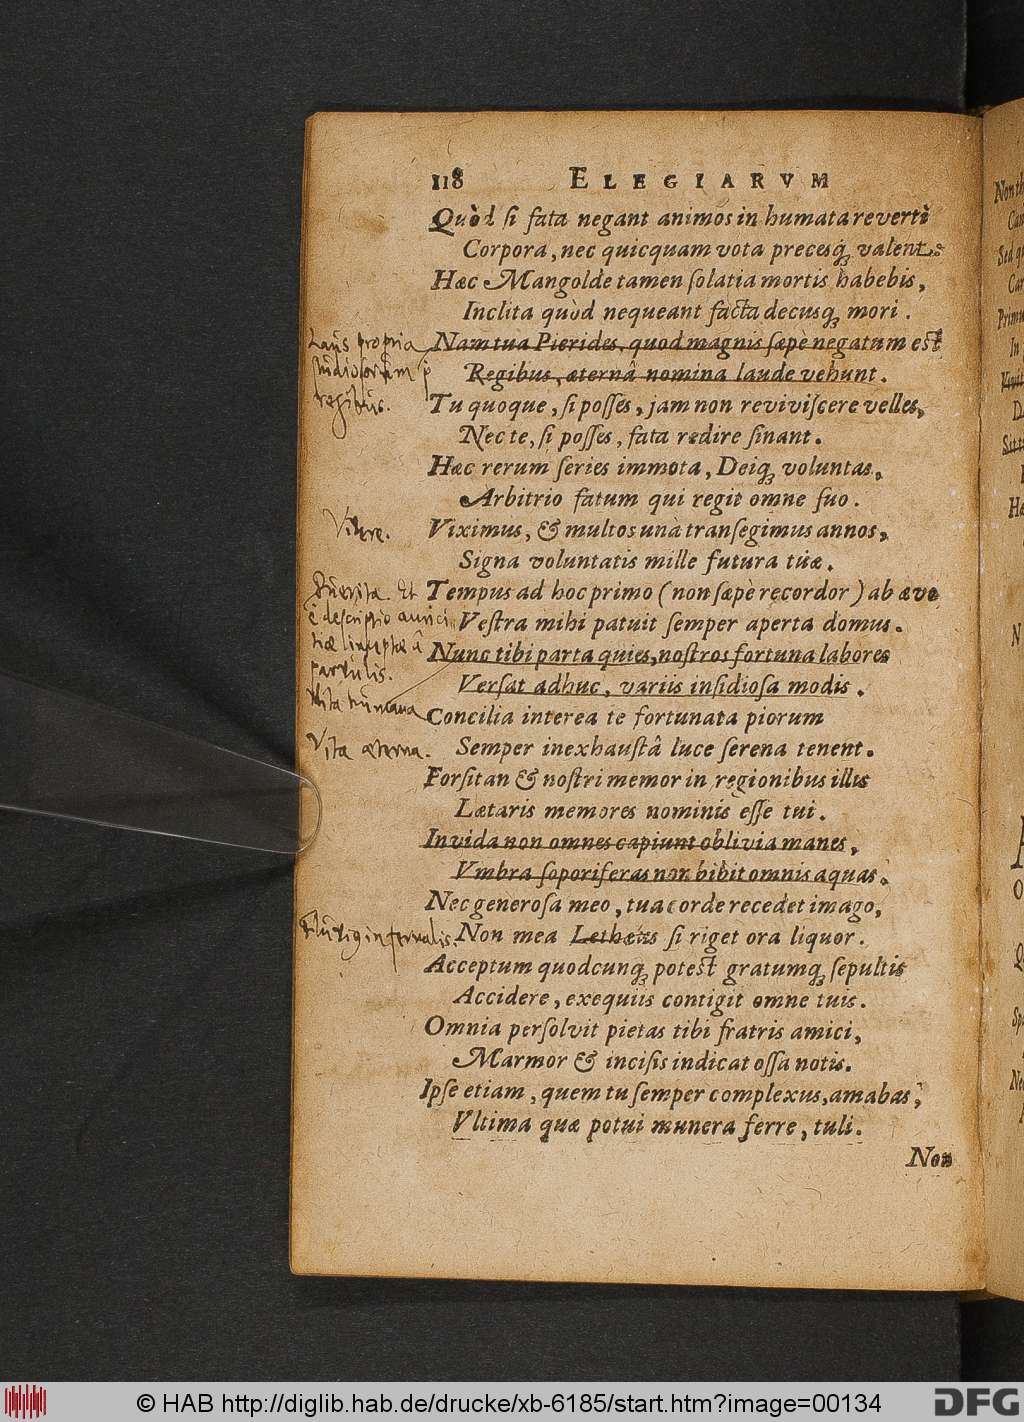 118 ELEGIARVM
Quòd si fata negant animos in humata reverti
Corpora, nec quicquam vota precesq́; valent:
Hæc Mangolde tamen solatia mortis habebis,
Inclita quòd nequeant facta decusq́; mori.
Nam tua Pierides, quod magnis sæpè negatum est
Regibus, æternâ nomina laude vehunt.
Tu quoque, si posses, jam non reviviscere velles,
Nec te, si posses, fata redire sinant.
Hæc rerum series immota, Deiq́; voluntas,
Arbitrio fatum qui regit omne suo.
Viximus, & multos unà transegimus annos,
Signa voluntatis mille futura tuæ.
Tempus ad hoc primo (non sæpè recordor) ab ævo
Vestra mihi patuit semper aperta domus.
Nunc tibi parta quies, nostros fortuna labores
Versat adhuc, variis insidiosa modis.
Concilia interea te fortunata piorum
Semper inexhaustâ luce serena tenent.
Forsitan & nostri memor in regionibus illis
Lætaris memores nominis esse tui.
Invida non omnes capiunt oblivia manes,
Vmbra soporiferas non bibit omnis aquas.
Nec generosa meo, tua corde recedet imago,
Non mea Lethæus si riget ora liquor.
Acceptum quodcunq́; potest gratumq́; sepultis
Accidere, exequiis contigit omne tuis.
Omnia persolvit pietas tibi fratris amici,
Marmor & incisis indicat ossa notis.
Ipse etiam, quem tu semper complexus, amabas,
Vltima quæ potui munera ferre, tuli.
Non
Laus propria
studiosorum
regibus.
Vivere.
descriptio amici
parvulis.
Vita humana
Vita æterna.
infernalis.
© HAB http://diglib.hab.de/drucke/xb-6185/start.htm?image=00134
DFG